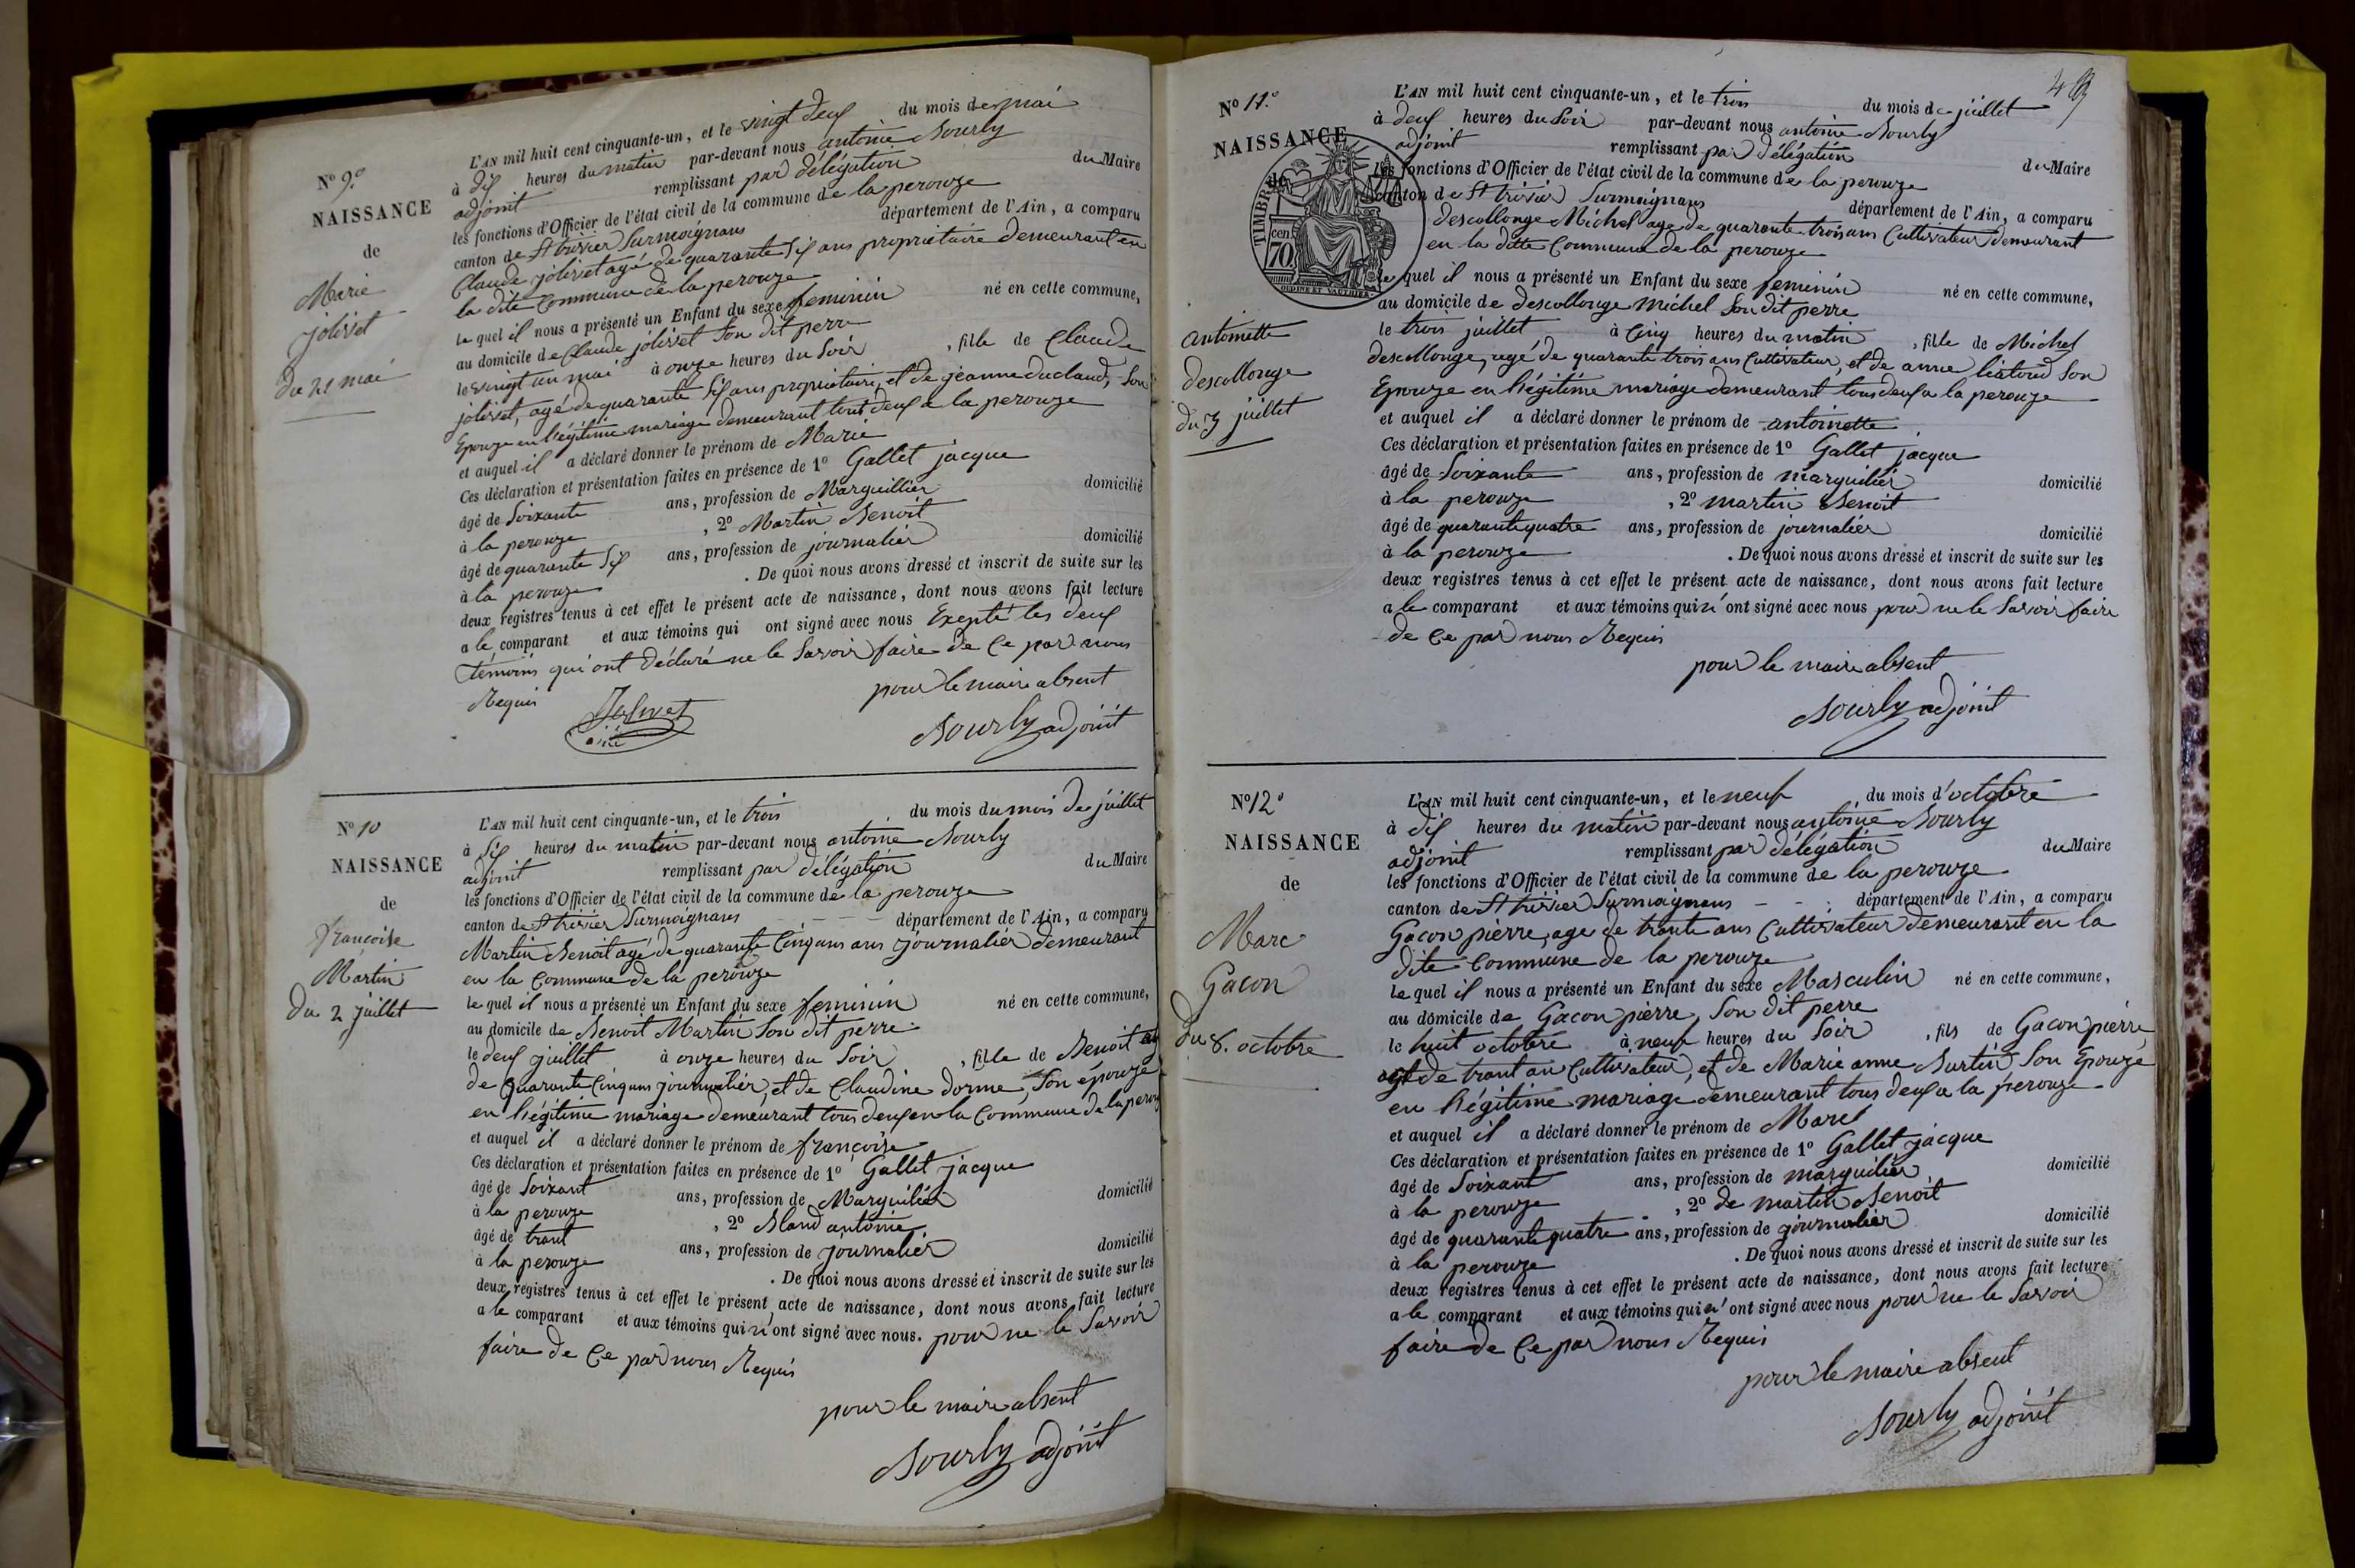 N° 9.°
NAISSANCE
de
Marie
jolivet
du 21 mai
L'AN mil huit cent cinquante-un, et le vingt deux du mois de mai
à dix heures du matin par-devant nous antoine Bourly
adjoint remplissant par délégation du Maire
les fonctions d'Officier de l'état civil de la commune de la perouze
canton de St trivier Surmoignans département de l'Ain, a comparu
Claude jolivet agé de quarante Six ans propriétaire demeurant en
la dite Commune de la perouze
le quel il nous a présenté un Enfant du sexe feminin né en cette commune,
au domicile de Claude jolivet Son dit perre
le vingt un mai à onze heures du Soir , fille de Claude
jolivet, agé de quarante Six ans propriétaire, et de jeanne duclaud, Son
Epouze en légitime mariage demeurant tout deux a la perouze
et auquel il a déclaré donner le prénom de Marie
Ces déclaration et présentation faites en présence de 1° Gallet jacque
âgé de Soixante ans, profession de Marguillier domicilié
à la perouze , 2° Martin Benoit
âgé de quarante Six ans, profession de journalier domicilié
à la perouze . De quoi nous avons dressé et inscrit de suite sur les
deux registres tenus à cet effet le présent acte de naissance, dont nous avons fait lecture
a le comparant et aux témoins qui ont signé avec nous Exepté les deux
témoins qui ont déclaré ne le Savoir faire de Ce par nous
Requis pour le maire absent
Jolivet
Bourly adjoint
N° 10
NAISSANCE
de
francoise
Martin
du 2 juillet
L'AN mil huit cent cinquante-un, et le trois du mois du mois de juillet
à Six heures du matin par-devant nous antoine Bourly
adjoint remplissant par délégation du Maire
les fonctions d'Officier de l'état civil de la commune de la perouze
canton de St trivier Surmoignans département de l'Ain, a comparu
Martin Benoit agé de quarante Cinq ans ans journalier demeurant
en la Commune de la perouze
le quel il nous a présenté un Enfant du sexe feminin né en cette commune,
au domicile de Benoit Martin Son dit perre
le deux juillet à onze heures du Soir , fille de Benoit
de quarante Cinq ans journalier, et de Claudine dorme, Son épouze
en légitime mariage demeurant tous deux en la Commune de la perouz
et auquel il a déclaré donner le prénom de francoise
Ces déclaration et présentation faites en présence de 1° Gallet jacque
âgé de Soixant ans, profession de Marguilier domicilié
à la perouze , 2° Bland antoine
âgé de trant ans, profession de journalier domicilié
à la perouze . De quoi nous avons dressé et inscrit de suite sur les
deux registres tenus à cet effet le présent acte de naissance, dont nous avons fait lecture
a le comparant et aux témoins qui n'ont signé avec nous. pour ne le Savoir
faire de Ce par nous Requis
pour le maire absent
Bourly adjoint
N° 11.°
NAISSANCE
de
antoinette
descollonge
du 3 juillet
TIMBRE
cen
70
L'AN mil huit cent cinquante-un, et le trois du mois de juillet
à deux heures du Soir par-devant nous antoine Bourly
adjoint remplissant par délégation du Maire
les fonctions d'Officier de l'état civil de la commune de la perouze
canton de St trivier Surmoignans département de l'Ain, a comparu
descollonge Michel age de quarante trois ans Cultivateur demeurant
en la ditte Commune de la perouze
le quel il nous a présenté un Enfant du sexe feminin né en cette commune,
au domicile de descollonge Michel Son dit perre
le trois juillet à Cinq heures du matin , fille de Michel
descollonge, agé de quarante trois ans Cultivateur, et de anne liatoud Son
Epouze en légitime mariage demeurant tous deux a la perouze
et auquel il a déclaré donner le prénom de antoinette
Ces déclaration et présentation faites en présence de 1° Gallet jacque
âgé de Soixante ans, profession de marguilier domicilié
à la perouze , 2° martin Benoit
âgé de quarante quatre ans, profession de journalier domicilié
à la perouze . De quoi nous avons dressé et inscrit de suite sur les
deux registres tenus à cet effet le présent acte de naissance, dont nous avons fait lecture
a le comparant et aux témoins qui n'ont signé avec nous pour ne le Savoir faire
de Ce par nous Requis
pour le maire absent
Bourly adjoint
N° 12°
NAISSANCE
de
Marc
Gacon
du 8. octobre
L'AN mil huit cent cinquante-un, et le neuf du mois d'octobre
à dix heures du matin par-devant nous antoine Bourly
adjoint remplissant par délégation du Maire
les fonctions d'Officier de l'état civil de la commune de la perouze
canton de St trivier Surmoignans département de l'Ain, a comparu
Gacon pierre, age de trante ans Cultivateur demeurant en la
dite Commune de la perouze
le quel il nous a présenté un Enfant du sexe Masculin né en cette commune,
au domicile de Gacon pierre, Son dit perre
le huit octobre à neuf heures du Soir , fils de Gacon pierre
agé de trant an Cultivateur, et de Marie anne Burtin Son Epouze
en légitime mariage demeurant tous deux a la perouze
et auquel il a déclaré donner le prénom de Marc
Ces déclaration et présentation faites en présence de 1° Gallet jacque
âgé de Soixant ans, profession de marguilier domicilié
à la perouze , 2° de martin Benoit
âgé de quarante quatre ans, profession de journalier domicilié
à la perouze . De quoi nous avons dressé et inscrit de suite sur les
deux registres tenus à cet effet le présent acte de naissance, dont nous avons fait lecture
a le comparant et aux témoins qui n'ont signé avec nous pour ne le Savoir
faire de Ce par nous Requis
pour le maire absent
Bourly adjoint